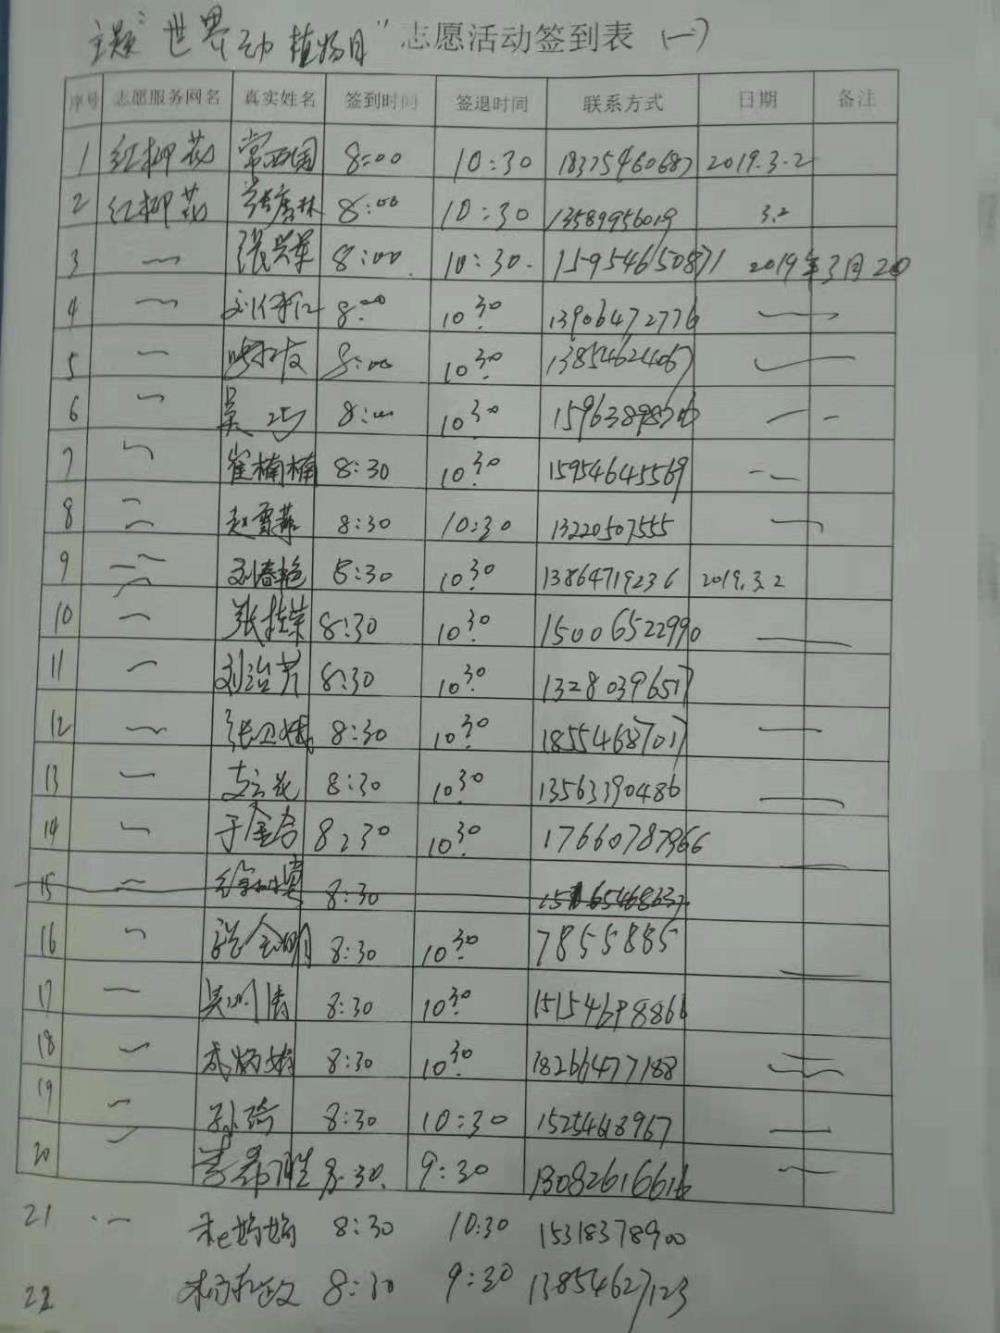 主题“世界动植物日”志愿活动签到表（一）
序号 志愿服务网名 真实姓名 签到时间 签退时间 联系方式 日期 备注
1 红柳花 常西国 8:00 10:30 18375460687 2019.3.2
2 红柳花 8:00 10:30 13589956019 3.2
3 〜 张兴军 8:00 10:30. 15954650871 2019年3月2日
4 〜 8:00 10:30 13906472776
5 〜 8:00 10:30 13854624067
6 〜 吴巧 8:00 10:30
7 〜 崔楠楠 8:30 10:30 15954645569
8 〜 赵雪菲 8:30 10:30 13220507555
9 〜 刘春艳 8:30 10:30 13864719236 2019.3.2
10 〜 张桂荣 8:30 10:30 15006522990
11 〜 刘治芳 8:30 10:30 13280396517
12 〜 8:30 10:30 18554687017
13 〜 8:30 10:30 13563390486
14 〜 于金杏 8:30 10:30 17660787966
15 〜 8:30
16 〜 8:30 10:30 7855885
17 〜 8:30 10:30 15154698866
18 〜 8:30 10:30 18266477188
19 〜 孙琦 8:30 10:30 15254618967
20 〜 李希胜 8:30. 9:30 13082616616
21 〜 8:30 10:30 15318378900
22 8:30 9:30 13854627123